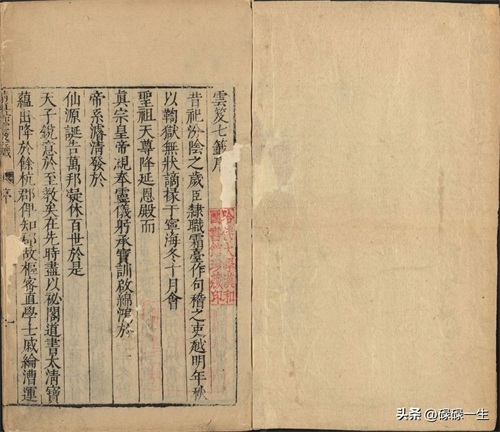 雲笈七籤序
昔祀汾陰之歲臣隸職霜臺作句稽之吏越明年秋
以鞫獄無狀謫掾于寧海冬十月會
聖祖天尊降延恩殿而
真宗皇帝親奉靈儀躬承寶訓啟綿鴻於
帝系濬清發於
仙源誕告萬邦凝休百世於是
天子銳意於至教矣在先時盡以祕閣道書太清寶
蘊出降於餘杭郡俾知郡故樞密直學士戚綸漕運
序
一
頭条 @磙磙一生